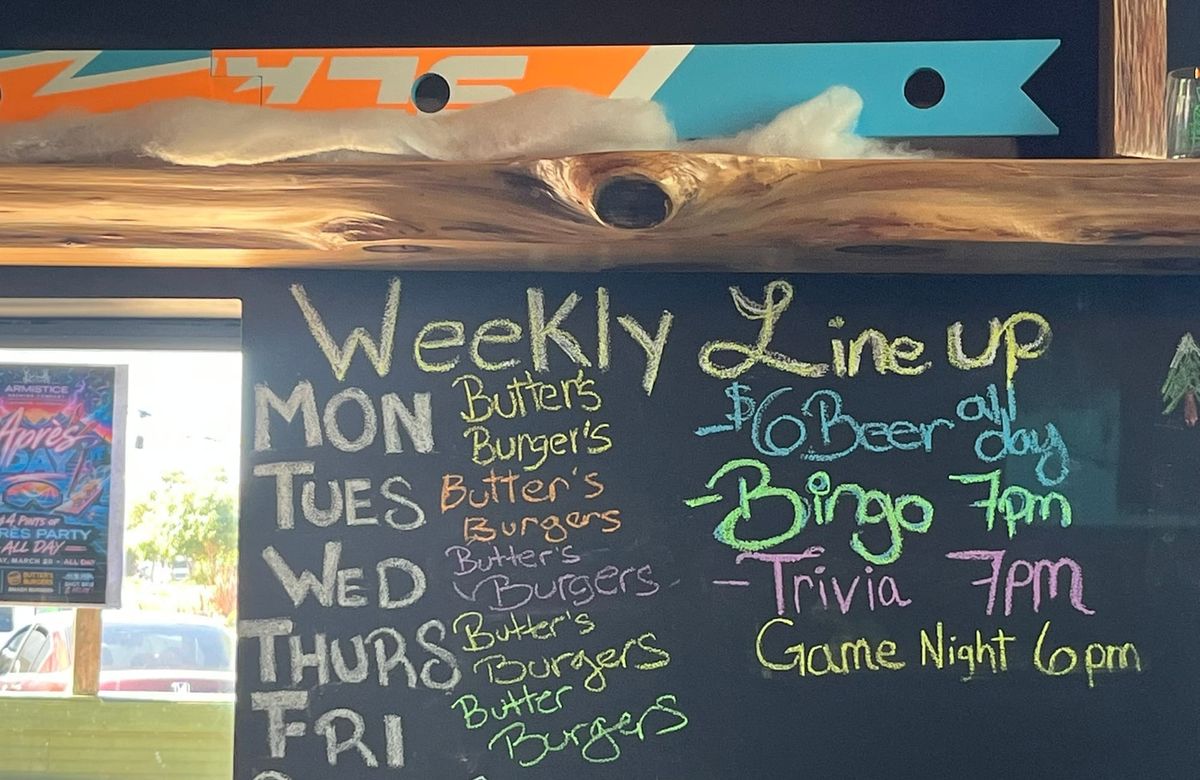 Weekly Line up
MON Butter's Burger's -$6 Beer all day
TUES Butter's Burgers -Bingo 7pm
WED Butter's Burgers - Trivia 7pm
THURS Butter's Burgers Game Night 6pm
FRI Butter Burgers
ARMISTICE
Après
DAY
PINTS OF
PARTY
ALL DAY
MARCH 28 • ALL DAY
BUTTER'S
BURGERS